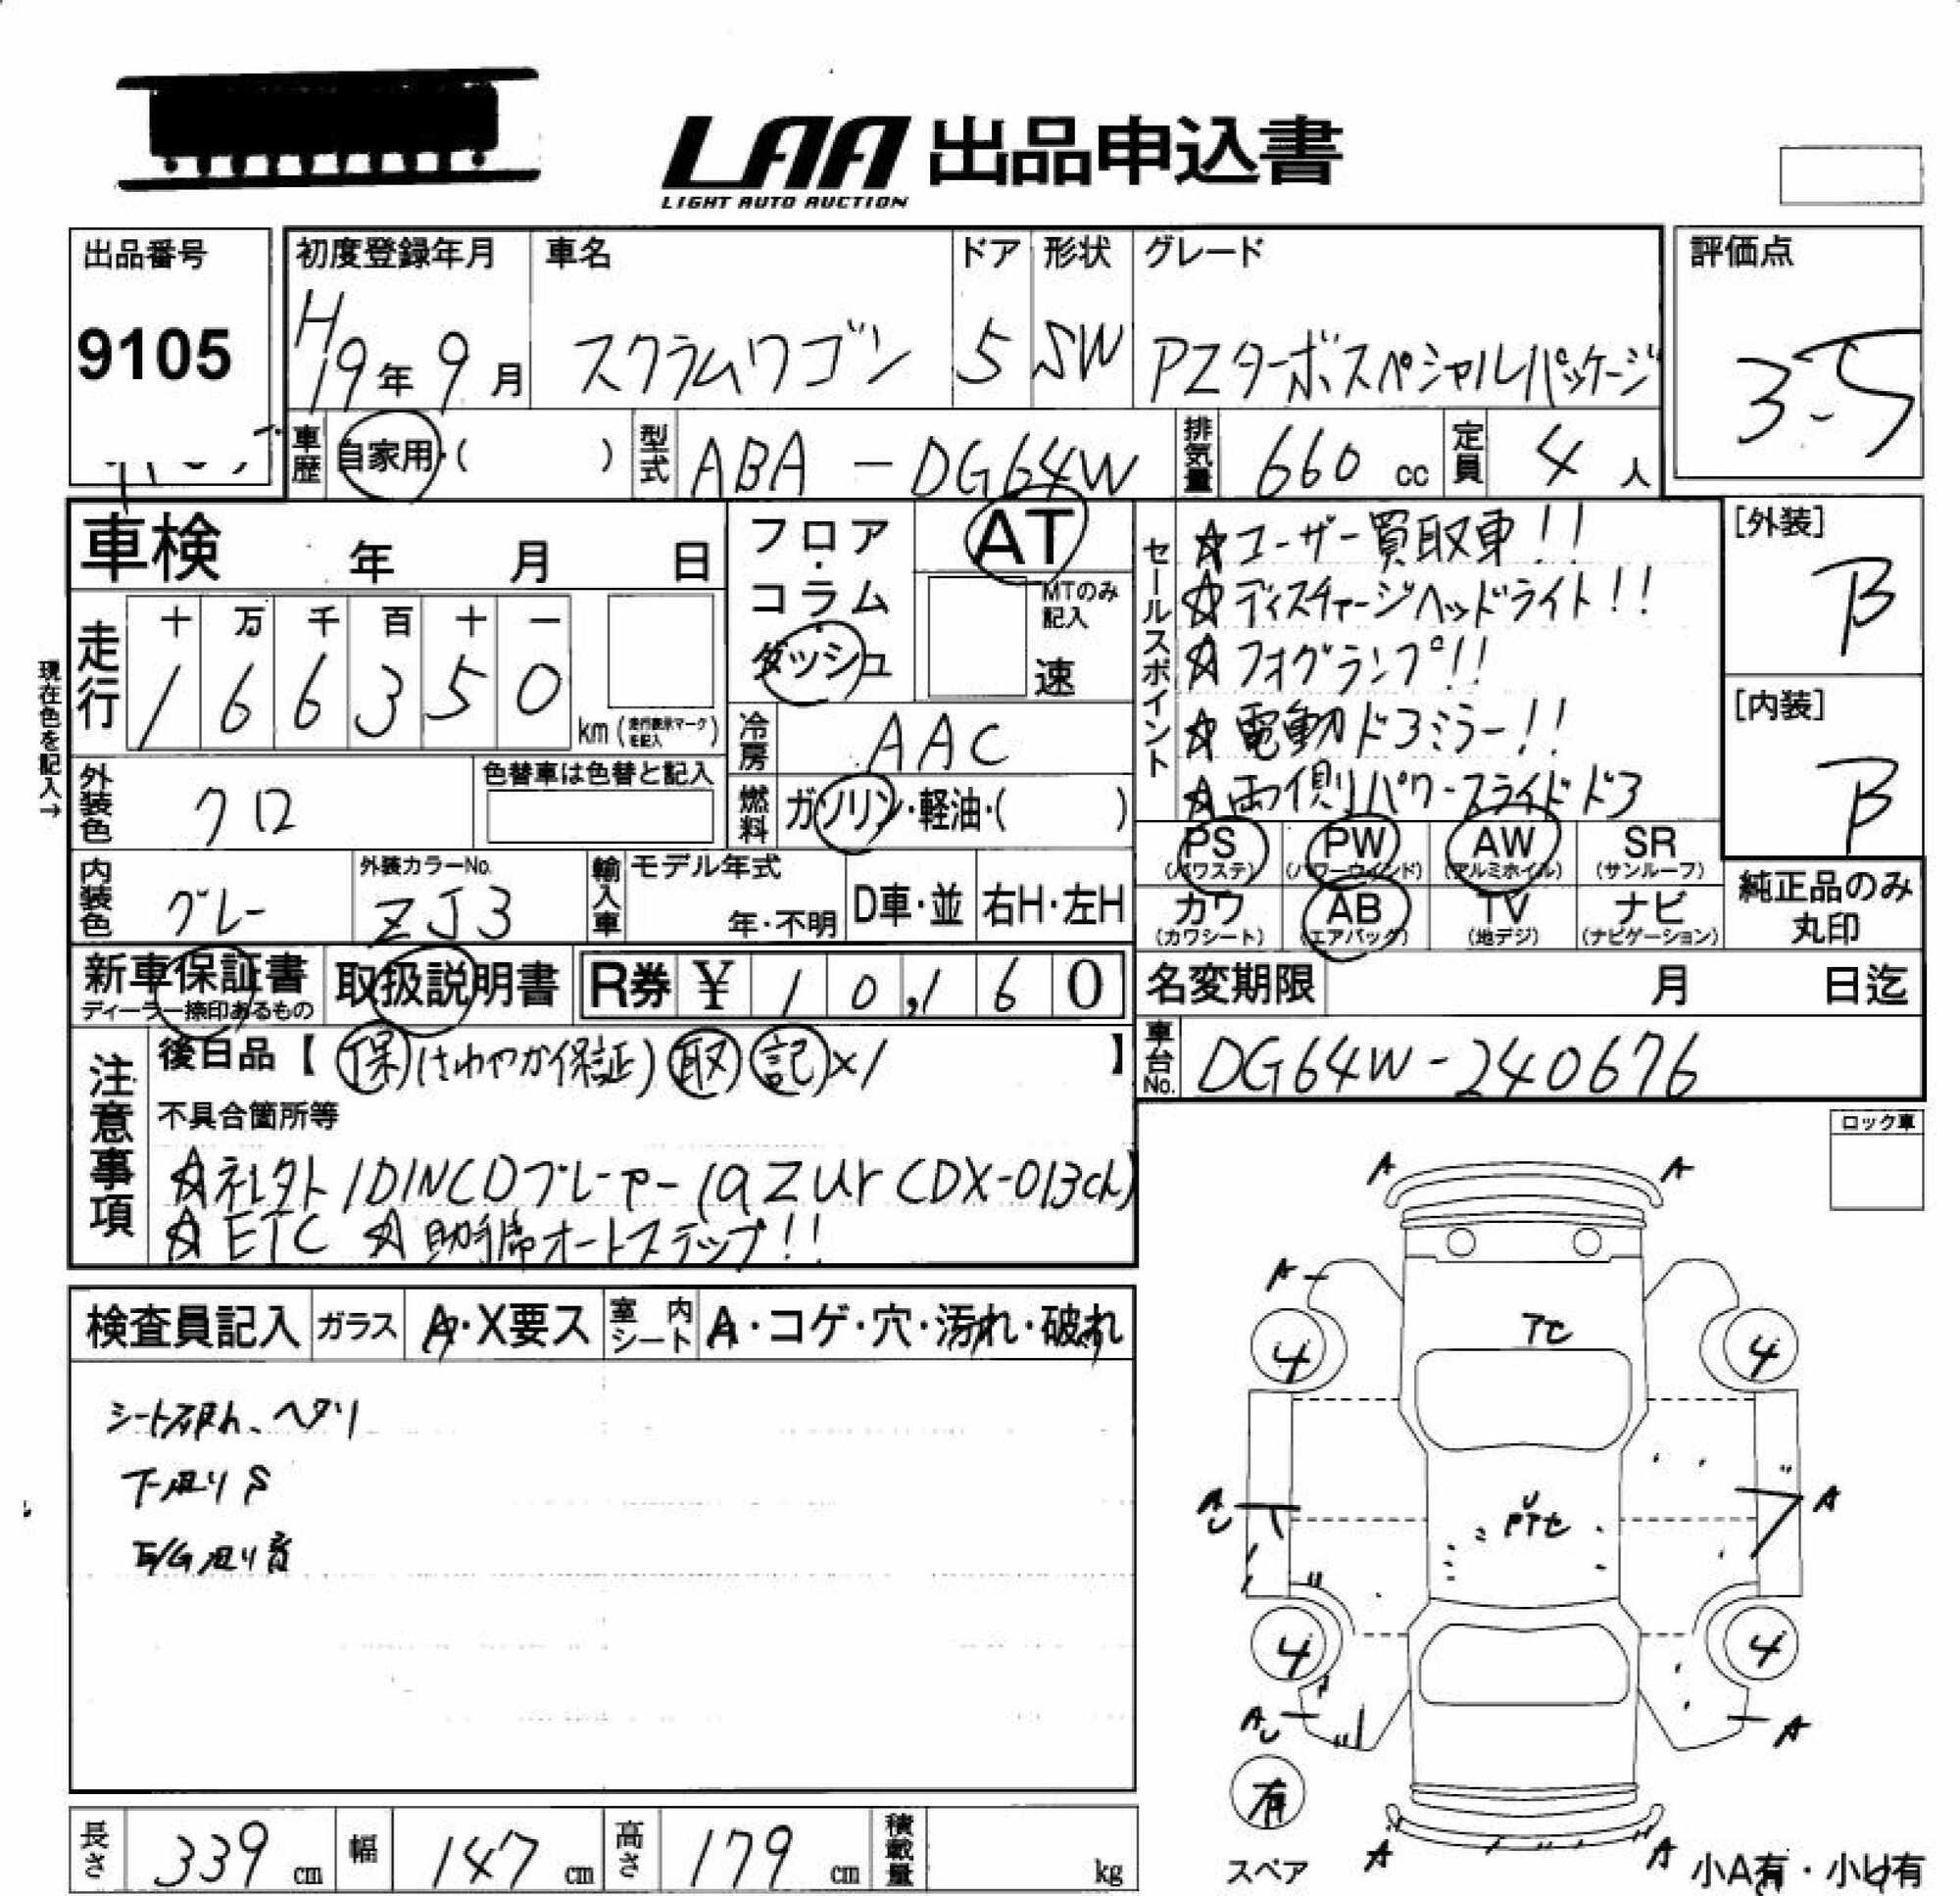 LAA 出品申込書
LIGHT AUTO AUCTION
出品番号 初度登録年月 車名 ドア 形状 グレード 評価点
9105 H19年 9月 スクラムワゴン 5 SW PZターボスペシャルパッケージ 3.5
車歴 自家用・( ) 型式 ABA-DG64W 排気量 660 cc 定員 4 人
車検 年 月 日
フロア・コラム・ダッシュ AT
MTのみ記入 速
セールスポイント
☆ユーザー買取車!!
☆ディスチャージヘッドライト!!
☆フォグランプ!!
☆電動ドアミラー!!
☆両側パワースライドドア
[外装] B
[内装] B
現在色を記入→
走行 十 万 千 百 十 一
1 6 6 3 5 0 km (走行表示マークを記入)
冷房 AAC
外装色 クロ 色替車は色替と記入
燃料 ガソリン・軽油・( )
PS (パワステ) PW (パワーウインド) AW (アルミホイル) SR (サンルーフ)
カワ (カワシート) AB (エアバッグ) TV (地デジ) ナビ (ナビゲーション)
純正品のみ丸印
内装色 グレー 外装カラーNo. ZJ3 輸入車 モデル年式 年・不明 D車・並 右H・左H
新車保証書 取扱説明書 R券 ¥ 10,160
ディーラー捺印あるもの
名変期限 月 日迄
車台No. DG64W-240676
注意事項
後日品【 保(さわやか保証) 取 記×1 】
不具合箇所等
☆ネレクト1DINCDプレーヤー(azur CDX-013ch)
☆ETC ☆助手席オートステップ!!
ロック車
検査員記入 ガラス A・X要ス 室内シート A・コゲ・穴・汚れ・破れ
シート破れ、ヘタリ
下廻りS
E/G廻り音
A A
A
4 4
A A
U
4 4
A A
U
A A
有
スペア
小A有・小U有
長さ 339 cm 幅 147 cm 高さ 179 cm 積載量 kg